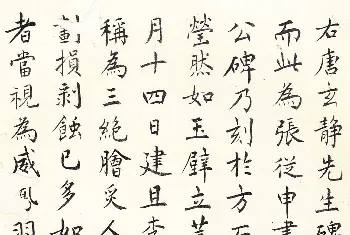 右唐玄静先生碑
而此為張從申書
公碑乃刻於方石
瑩然如玉壁立
月十四日建且李
稱為三絕膾炙人
損剥蝕已多如
者當視為威鳳羽